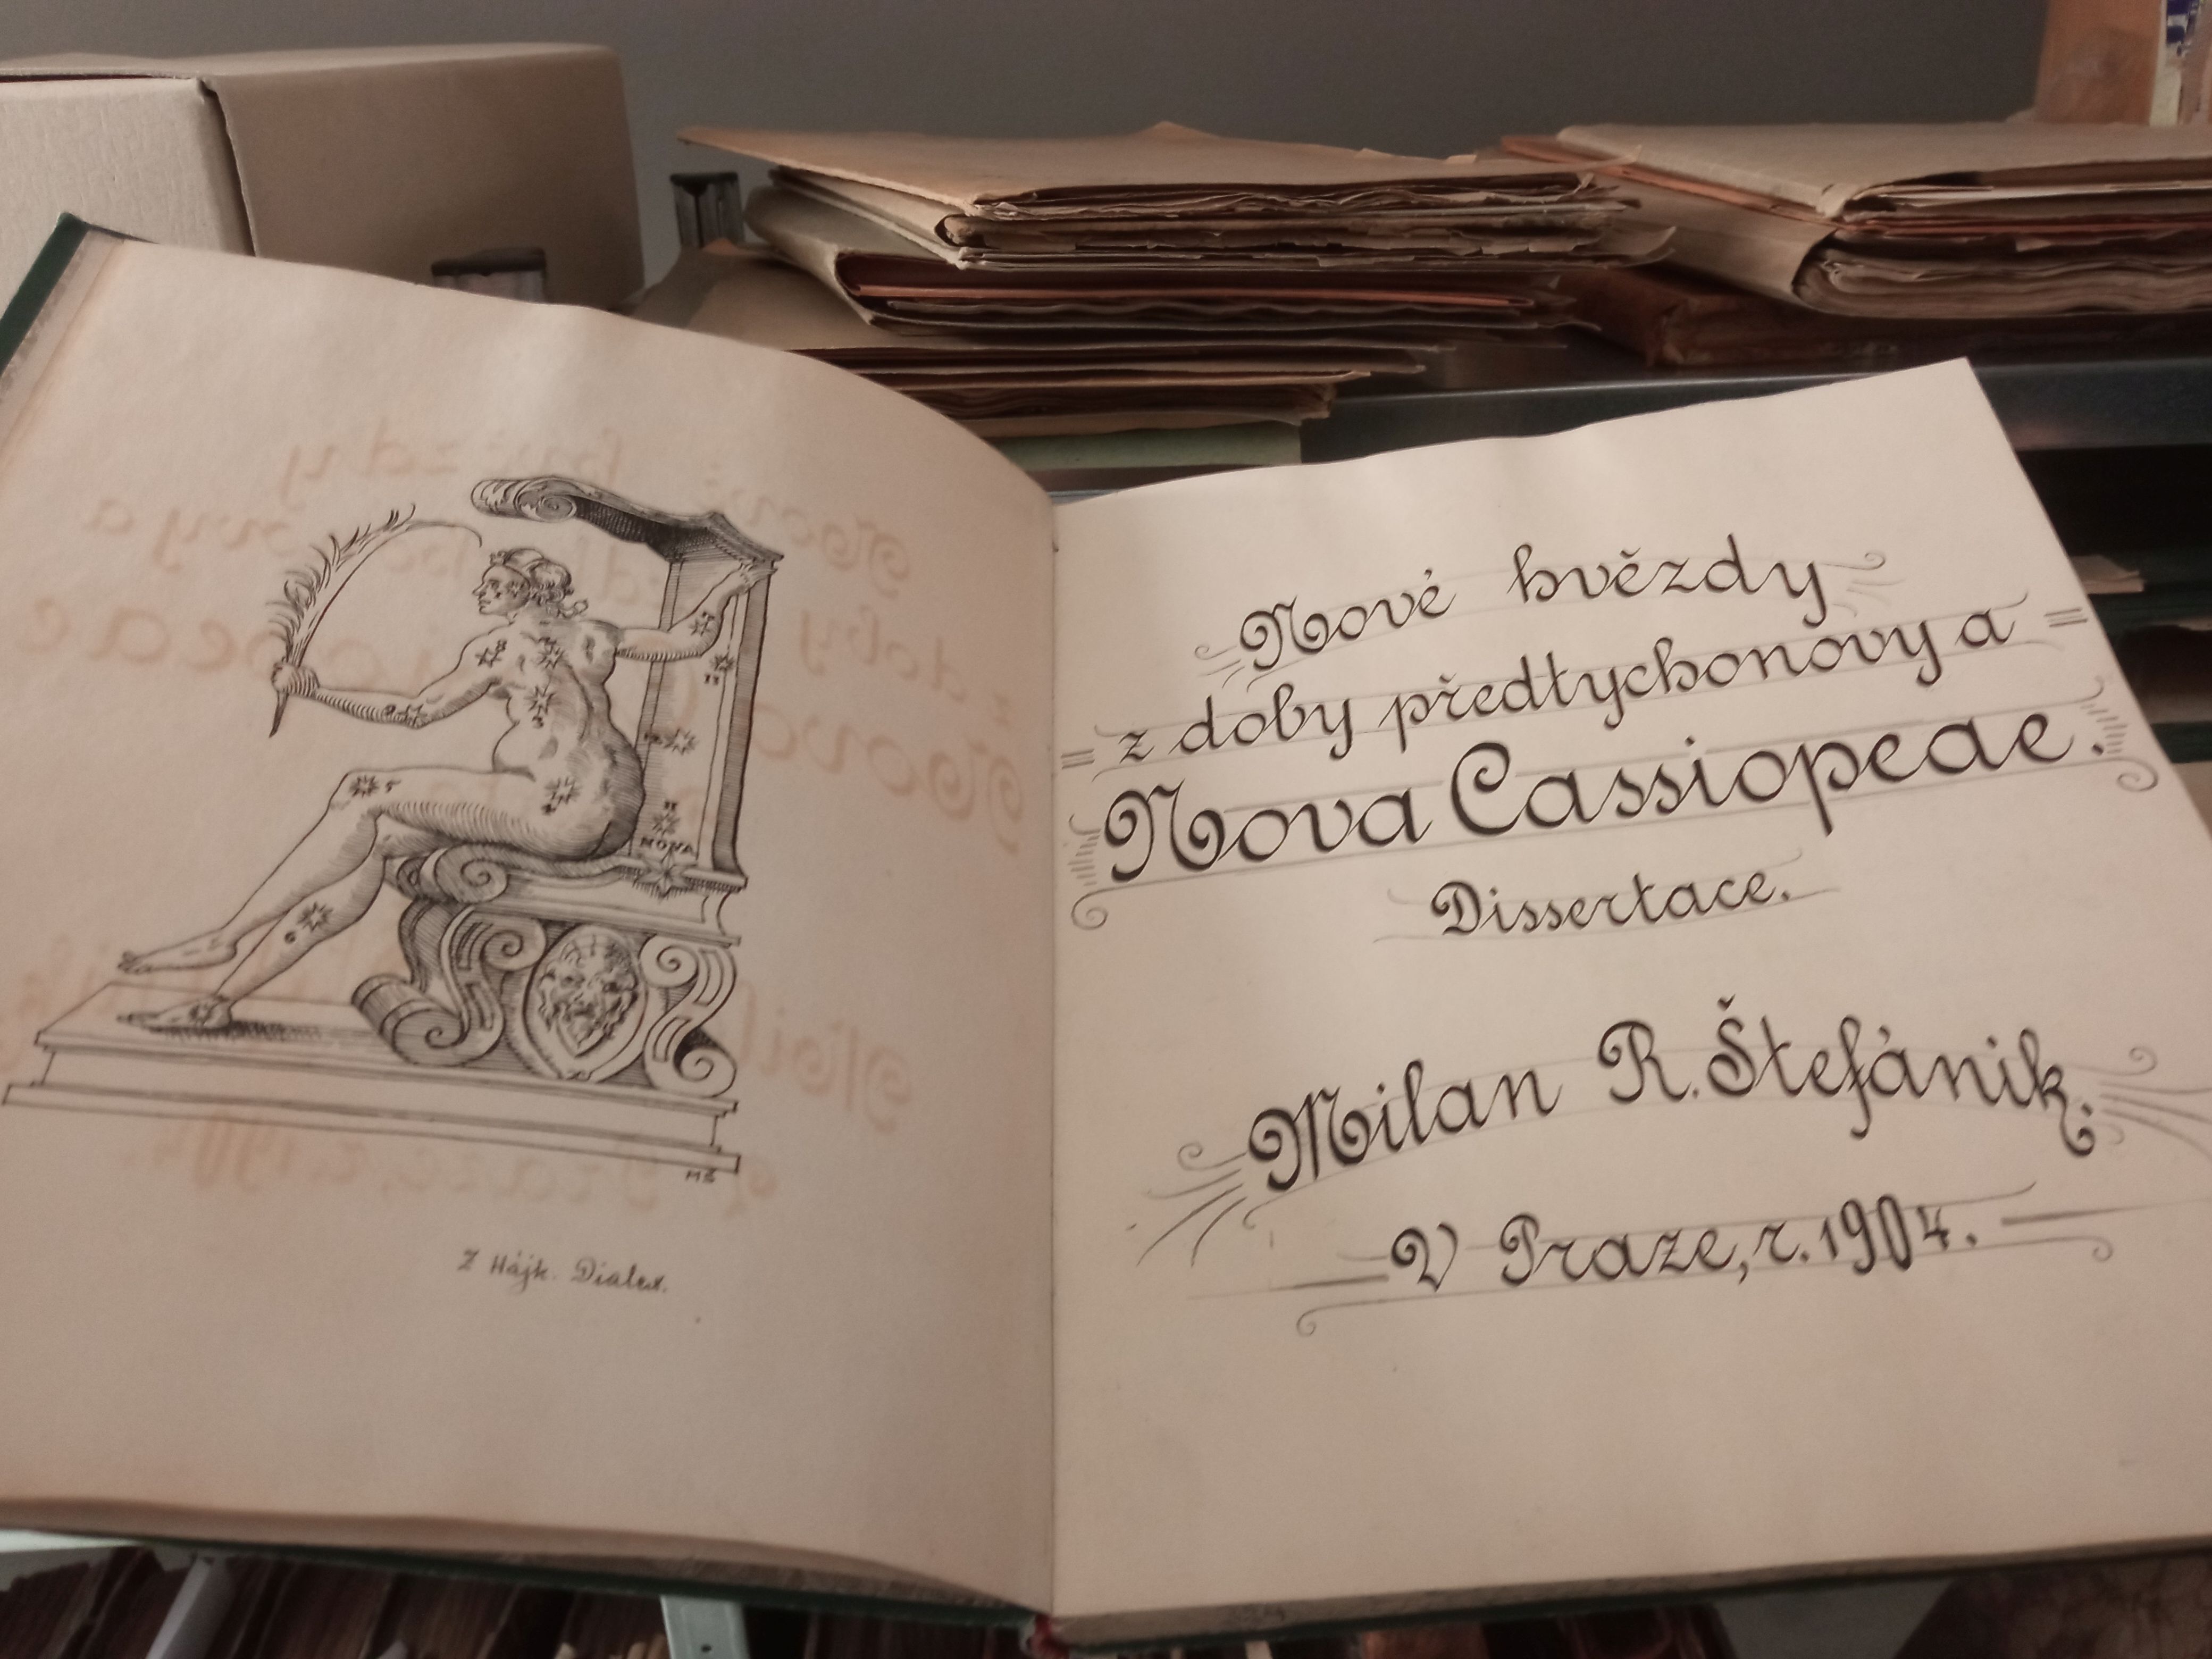 NOVA
MŠ
Z Hájk. Dialex.
Nové hvězdy
z doby předtychonovy a
Nova Cassiopeae.
Dissertace.
Milan R. Štefánik.
V Praze, r. 1904.